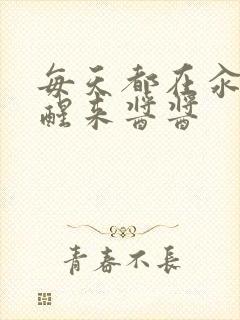 每天都在汆
醒来酱酱
青春不長